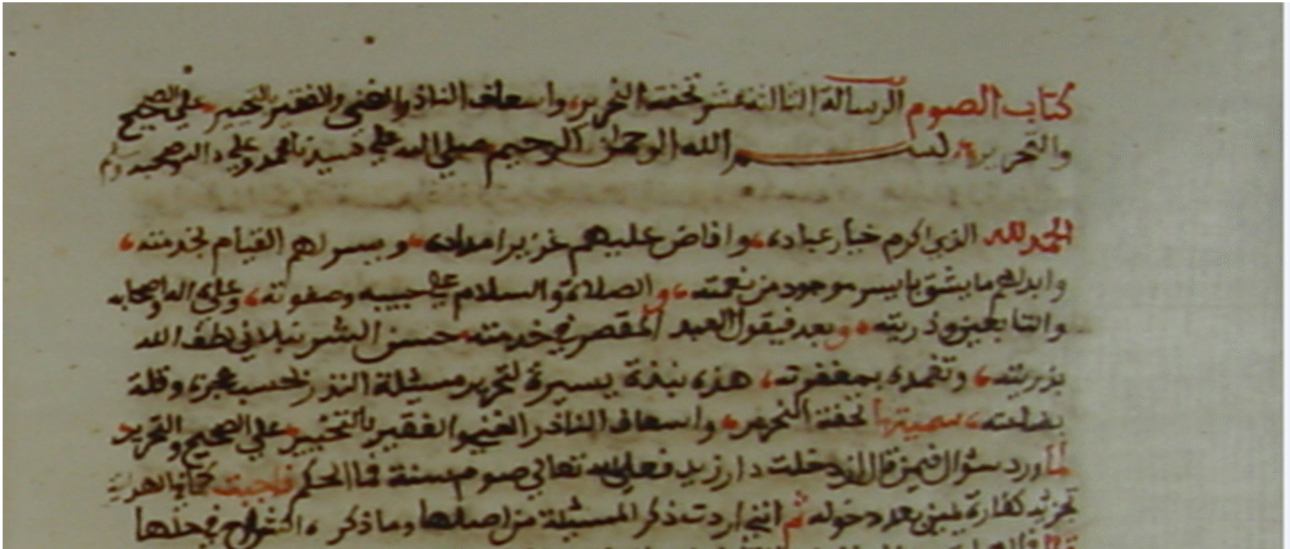 كتاب الصوم الرسالة الثالثة عشر تحفة النحرير واسعاف الناذر الغني والفقير بالتخيير على الصحيح
والتحرير بسم الله الرحمن الرحيم صلى الله على سيدنا محمد وعلى اله وصحبه وسلم
الحمد لله الذي اكرم خيار عباده وافاض عليهم غزير امداده ويسر لهم القيام لخدمته
وابدلهم ما يشق بايسر موجود من نعمته والصلاة والسلام على حبيبه وصفوته وعلى اله واصحابه
والتابعين وذريته وبعد فيقول العبد المقصر في خدمته حسن الشرنبلالي لطف الله
بذريته وتغمده بمغفرته هذه نبذة يسيرة لتحرير مسئلة النذر بحسب عجزه وقلة
بضاعته سميتها تحفة النحرير واسعاف الناذر الغني والفقير بالتخيير على الصحيح والتحرير
لما ورد سؤال فيمن قال ان دخلت دار زيد فعلي لله تعالى صوم سنة فما الحكم فاجبت
تجزيه كفارة يمين بعد دخوله ثم انني اردت ذكر المسئلة من اصلها وما ذكره الشراح في حلها